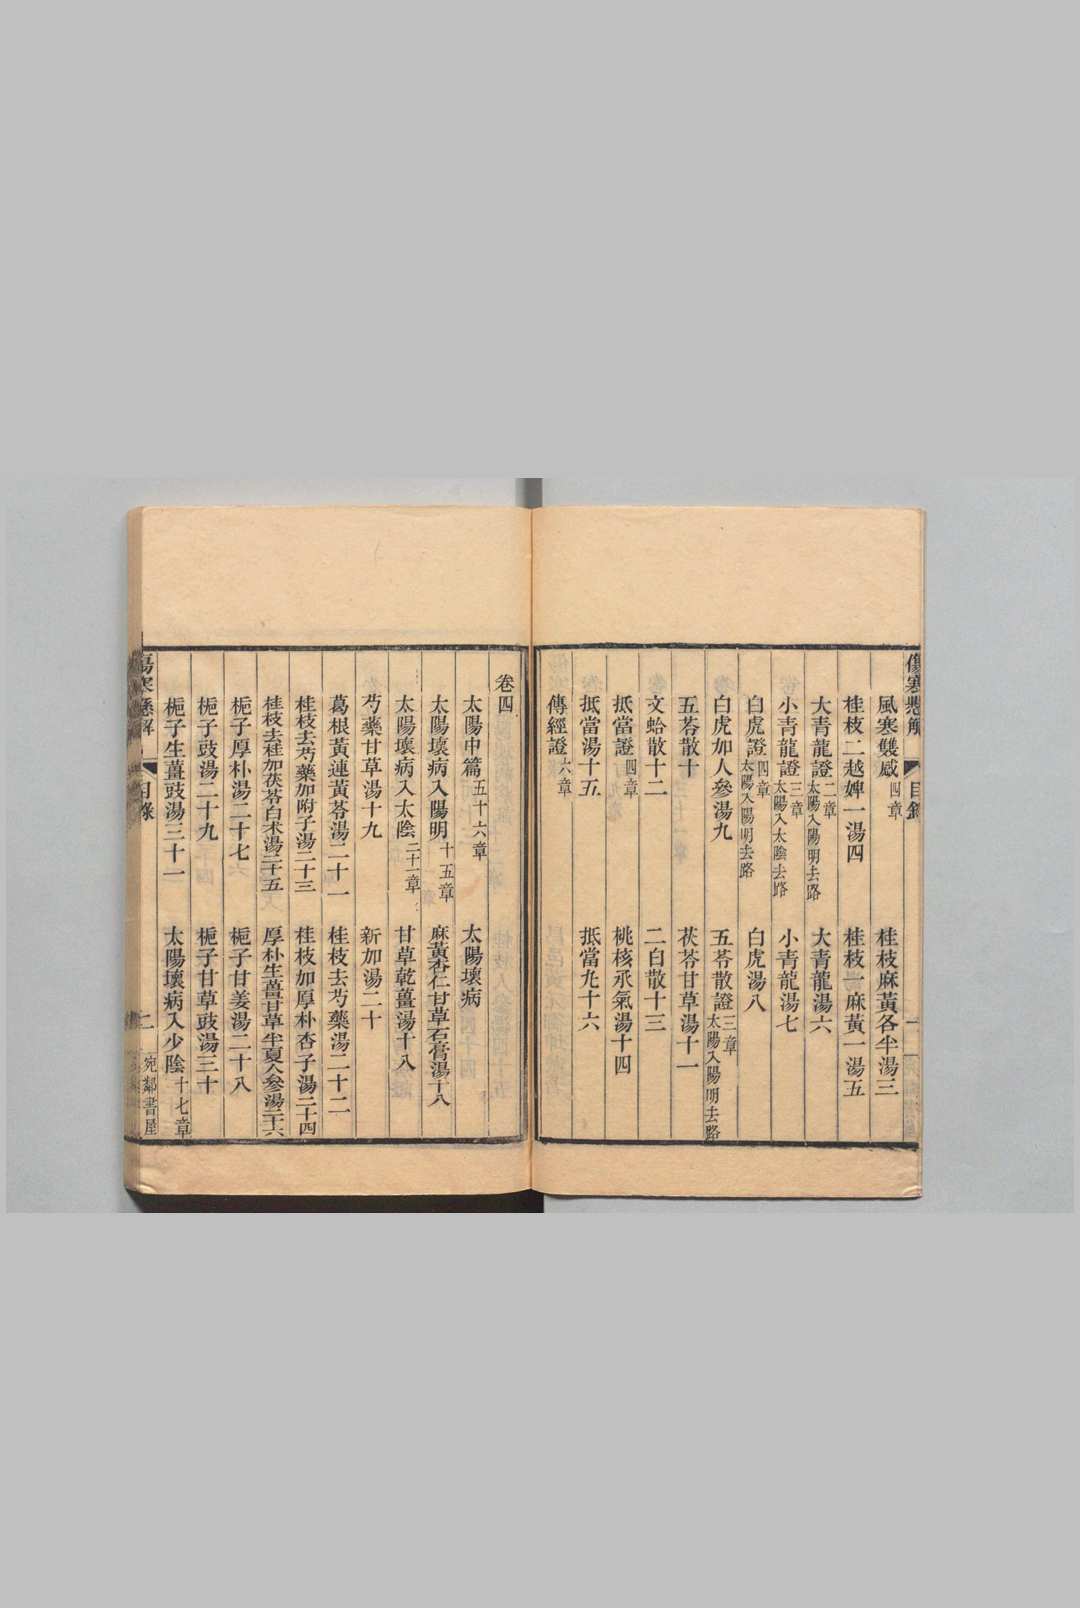 傷寒懸解 目錄 一
風寒雙感四章 桂枝麻黃各半湯三
桂枝二越婢一湯四 桂枝二麻黃一湯五
大青龍證二章太陽入陽明去路 大青龍湯六
小青龍證三章太陽入太陰去路 小青龍湯七
白虎證四章太陽入陽明去路 白虎湯八
白虎加人參湯九 五苓散證三章太陽入陽明去路
五苓散十 茯苓甘草湯十一
文蛤散十二 二白散十三
抵當證四章 桃核承氣湯十四
抵當湯十五 抵當九十六
傳經證六章
卷四
太陽中篇五十六章 太陽壞病
太陽壞病入陽明十五章 麻黃杏仁甘草石膏湯十八
太陽壞病入太陰二十一章 甘草乾薑湯十八
芍藥甘草湯十九 新加湯二十
葛根黃連黃芩湯二十一 桂枝去芍藥湯二十二
桂枝去芍藥加附子湯二十三 桂枝加厚朴杏子湯二十四
桂枝去桂加茯苓白朮湯二十五 厚朴生薑甘草半夏人參湯二十六
梔子厚朴湯二十七 梔子甘姜湯二十八
梔子豉湯二十九 梔子甘草豉湯三十
梔子生薑豉湯三十一 太陽壞病入少陰十七章
傷寒懸解 目錄 二 宛鄰書屋